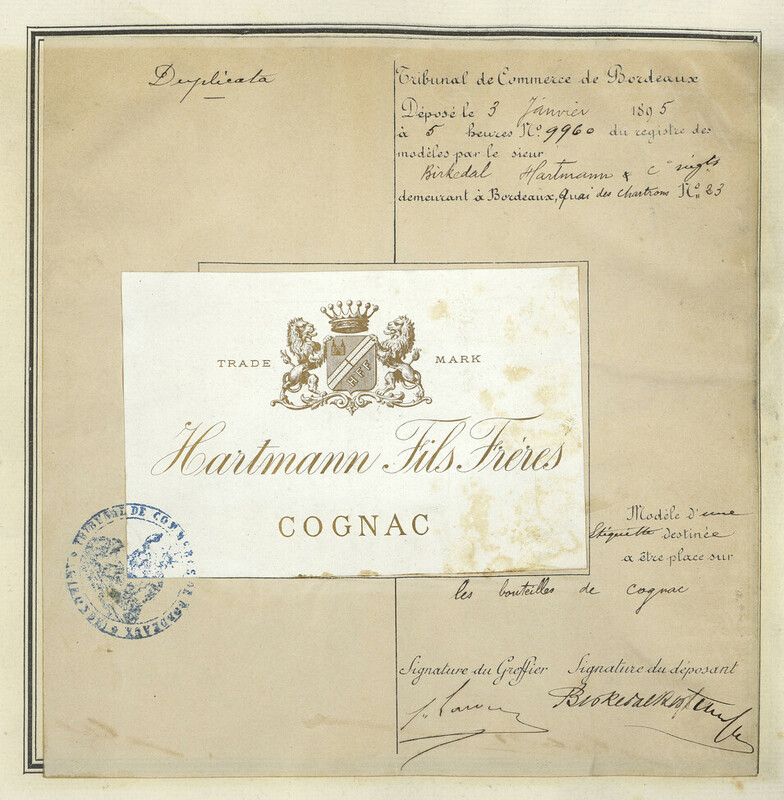 Duplicata
Tribunal de Commerce de Bordeaux
Déposé le 3 Janvier 1895
à 5 heures No. 9960 du registre des
modèles par le sieur
Birkedal Hartmann & Co négts
demeurant à Bordeaux, Quai des Chartrons No. 23
TRADE MARK
HFF
Hartmann Fils Fréres
COGNAC
TRIBUNAL DE COMMERCE DE BORDEAUX
Modèle d'une
Etiquette destinée
a être place sur
les bouteilles de cognac
Signature du Greffier Signature du déposant